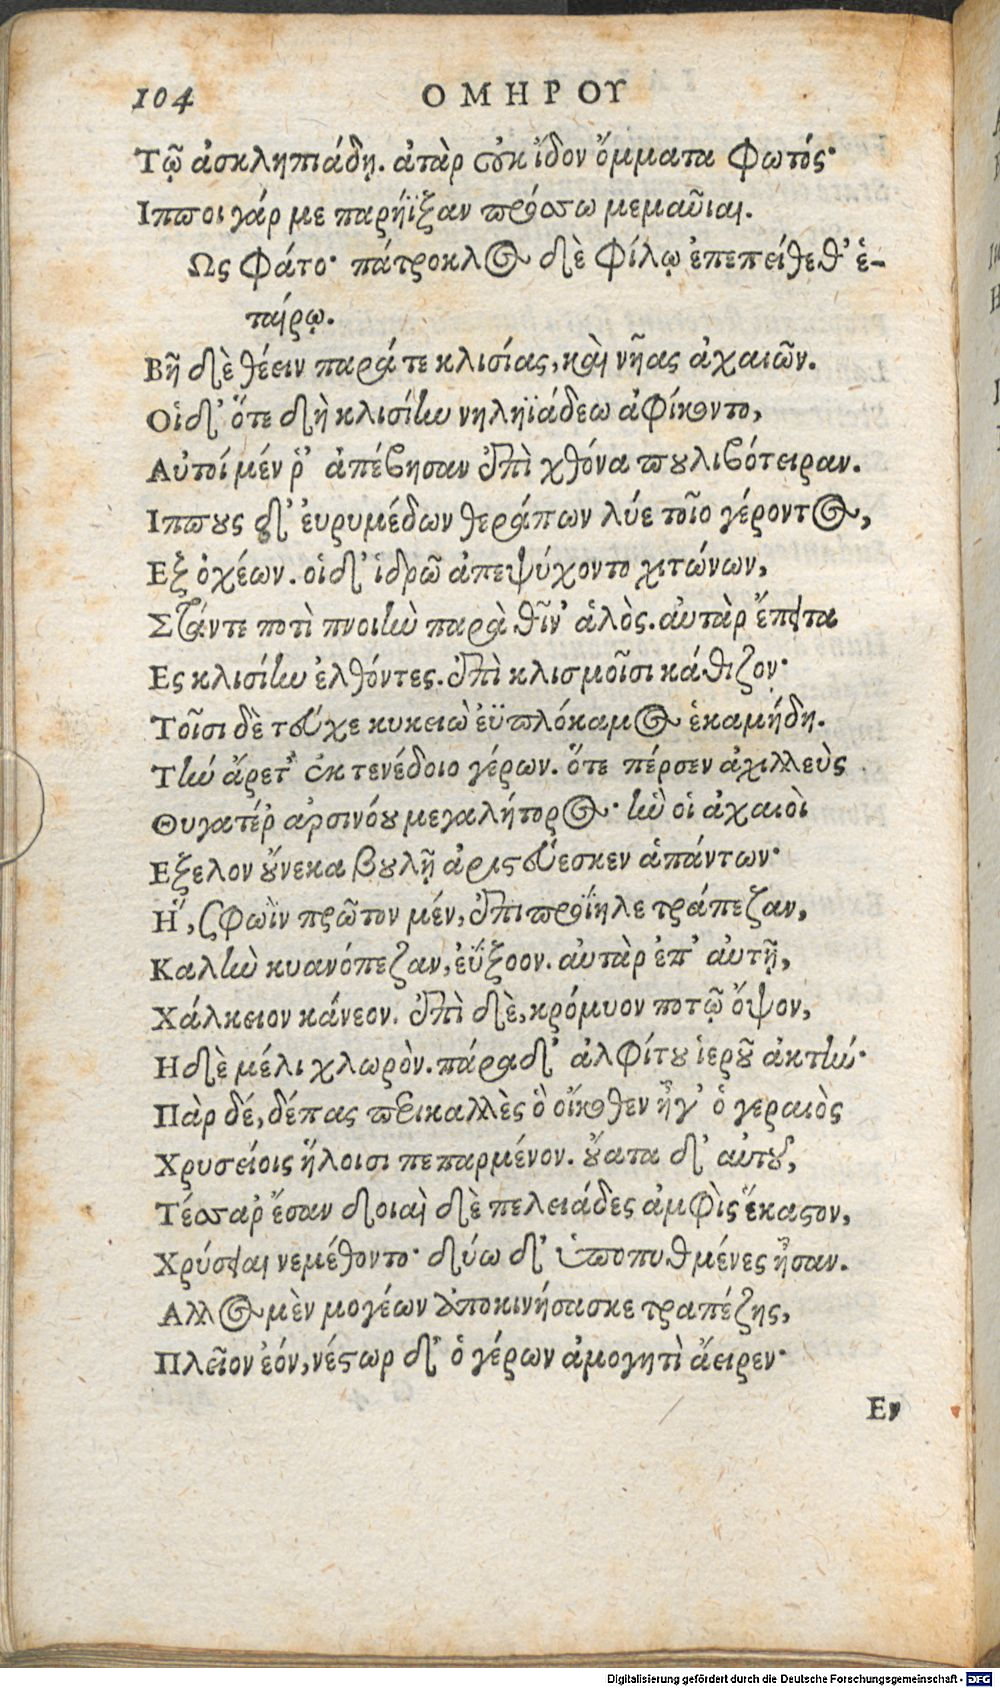 104 ΟΜΗΡΟΥ
Τῷ ἀσκληπιάδῃ. ἀτὰρ οὐκ ἴδον ὄμματα φωτός·
Ιπποι γάρ με παρήϊξαν πρόσσω μεμαῦιαι.
Ως φάτο· πάτροκλος δὲ φίλῳ ἐπεπείθεθ' ἑ-
ταίρῳ.
Βῆ δὲ θέειν παρά τε κλισίας, καὶ νῆας ἀχαιῶν.
Οἱ δ' ὅτε δὴ κλισίην νηληϊάδεω ἀφίκοντο,
Αὐτοί μέν ῥ' ἀπέβησαν ἐπὶ χθόνα πουλιβότειραν.
Ιππους δ' ἐυρυμέδων θεράπων λύε τοῖο γέροντος,
Εξ ὀχέων. οἱ δ' ἱδρῶ ἀπεψύχοντο χιτώνων,
Στάντε ποτὶ πνοιὴν παρὰ θῖν' ἁλὸς. αὐτὰρ ἔπειτα
Ες κλισίην ἐλθόντες. ἐπὶ κλισμοῖσι κάθιζον·
Τοῖσι δὲ τεύχε κυκειὼ ἐϋπλόκαμος ἑκαμήδη.
Τὴν ἄρετ' ἐκ τενέδοιο γέρων. ὅτε πέρσεν ἀχιλλεὺς
Θυγατέρ ἀρσινόου μεγαλήτορος· ἣν οἱ ἀχαιοὶ
Εξελον οὕνεκα βουλῇ ἀριστεύεσκεν ἁπάντων·
Η, σφωῒν πρῶτον μέν, ἐπιπροΐηλε τράπεζαν,
Καλὴν κυανόπεζαν, ἐΰξοον. αὐτὰρ ἐπ' ἀυτῇ,
Χάλκειον κάνεον. ἐπὶ δὲ, κρόμυον ποτῷ ὄψον,
Η δὲ μέλι χλωρὸν. πάρα δ' ἀλφίτου ἱεροῦ ἀκτήν·
Πὰρ δέ, δέπας περικαλλὲς ὃ οἴκοθεν ἦγ' ὁ γεραιὸς
Χρυσείοις ἥλοισι πεπαρμένον. οὔατα δ' αὐτοῦ,
Τέσσαρ ἔσαν δοιαὶ δὲ πελειάδες ἀμφὶς ἕκαστον,
Χρύσειαι νεμέθοντο· δύω δ' ὑποπυθμένες ἦσαν.
Αλλος μὲν μογέων ἀποκινήσασκε τραπέζης,
Πλεῖον ἐόν, νέστωρ δ' ὁ γέρων ἀμογητὶ ἄειρεν·
Εν
Digitalisierung gefördert durch die Deutsche Forschungsgemeinschaft - DFG